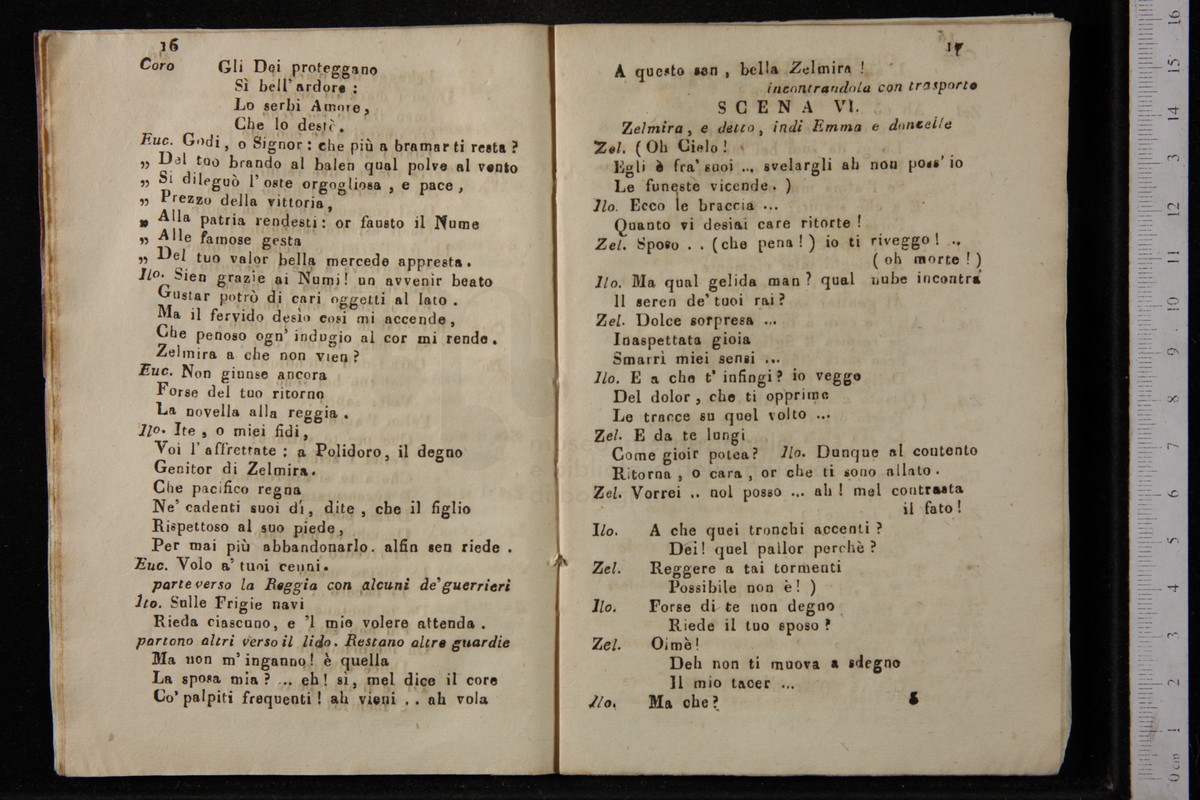 16
Coro Gli Dei proteggano
Sì bell' ardore :
Lo serbi Amore,
Che lo destò.
Euc. Godi, o Signor : che più a bramar ti resta ?
„ Dal tuo brando al balen qual polve al vento
„ Si dileguò l' oste orgogliosa , e pace ,
„ Prezzo della vittoria,
„ Alla patria rendesti : or fausto il Nume
„ Alle famose gesta
„ Del tuo valor bella mercede appresta.
Ilo. Sien grazie ai Numi! un avvenir beato
Gustar potrò di cari oggetti al lato .
Ma il fervido desìo così mi accende ,
Che penoso ogn' indugio al cor mi rende.
Zelmira a che non vien ?
Euc. Non giunse ancora
Forse del tuo ritorno
La novella alla reggia .
Ilo. Ite , o miei fidi,
Voi l' affrettate : a Polidoro, il degno
Genitor di Zelmira.
Che pacifico regna
Ne' cadenti suoi dì, dite , che il figlio
Rispettoso al suo piede,
Per mai più abbandonarlo. alfin sen riede .
Euc. Volo a' tuoi cenni.
parte verso la Reggia con alcuni de' guerrieri
Ito. Sulle Frigie navi
Rieda ciascuno, e 'l mio volere attenda .
partono altri verso il lido. Restano altre guardie
Ma non m' inganno! è quella
La sposa mia ? ... eh! sì, mel dice il core
Co' palpiti frequenti ! ah vieni . . ah vola
17
A questo sen , bella Zelmira !
incontrandola con trasporto
SCENA VI.
Zelmira, e detto, indi Emma e doncelle
Zel. ( Oh Cielo !
Egli è fra' suoi ... svelargli ah non poss' io
Le funeste vicende. )
Ilo. Ecco le braccia ...
Quanto vi desiai care ritorte !
Zel. Sposo . . ( che pena ! ) io ti riveggo ! ..
( oh morte ! )
Ilo. Ma qual gelida man ? qual nube incontra
Il seren de' tuoi rai ?
Zel. Dolce sorpresa ...
Inaspettata gioia
Smarrì miei sensi ...
Ilo. E a che t' infingi ? io veggo
Del dolor , che ti opprime
Le tracce su quel volto ...
Zel. E da te lungi
Come gioir potea? Ilo. Dunque al contento
Ritorna , o cara , or che ti sono allato .
Zel. Vorrei .. nol posso ... ah ! mel contrasta
il fato !
Ilo. A che quei tronchi accenti ?
Dei! quel pallor perchè ?
Zel. Reggere a tai tormenti
Possibile non è! )
Ilo. Forse di te non degno
Riede il tuo sposo ?
Zel. Oimè!
Deh non ti muova a sdegno
Il mio tacer ...
Ilo. Ma che ?